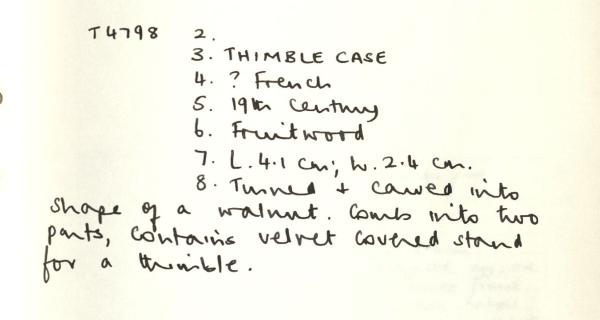 T4798 2.
3. THIMBLE CASE
4. ? French
5. 19th Century
6. Fruitwood
7. L. 4.1 cm; W. 2.4 cm.
8. Turned + carved into
shape of a walnut. Comes into two
parts, contains velvet covered stand
for a thimble.